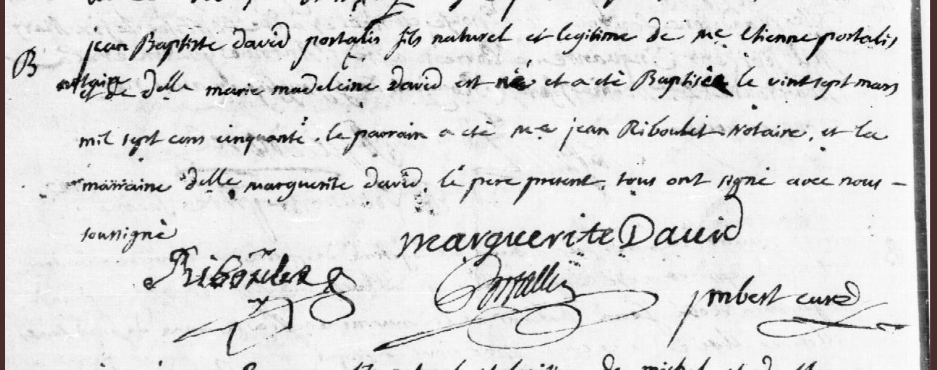 B
jean Baptiste david portalis fils naturel et legitime de me etienne portalis
notaire et de delle marie madeleine David est né et a eté Baptisé le vint sept mars
mil sept cens cinquante. le parrain a eté me jean Riboulet notaire, et la
marraine delle marguerite david. le pere present, tous ont signé avec nous
soussigné
marguerite David
Riboulet
Portallis
jmbert curé